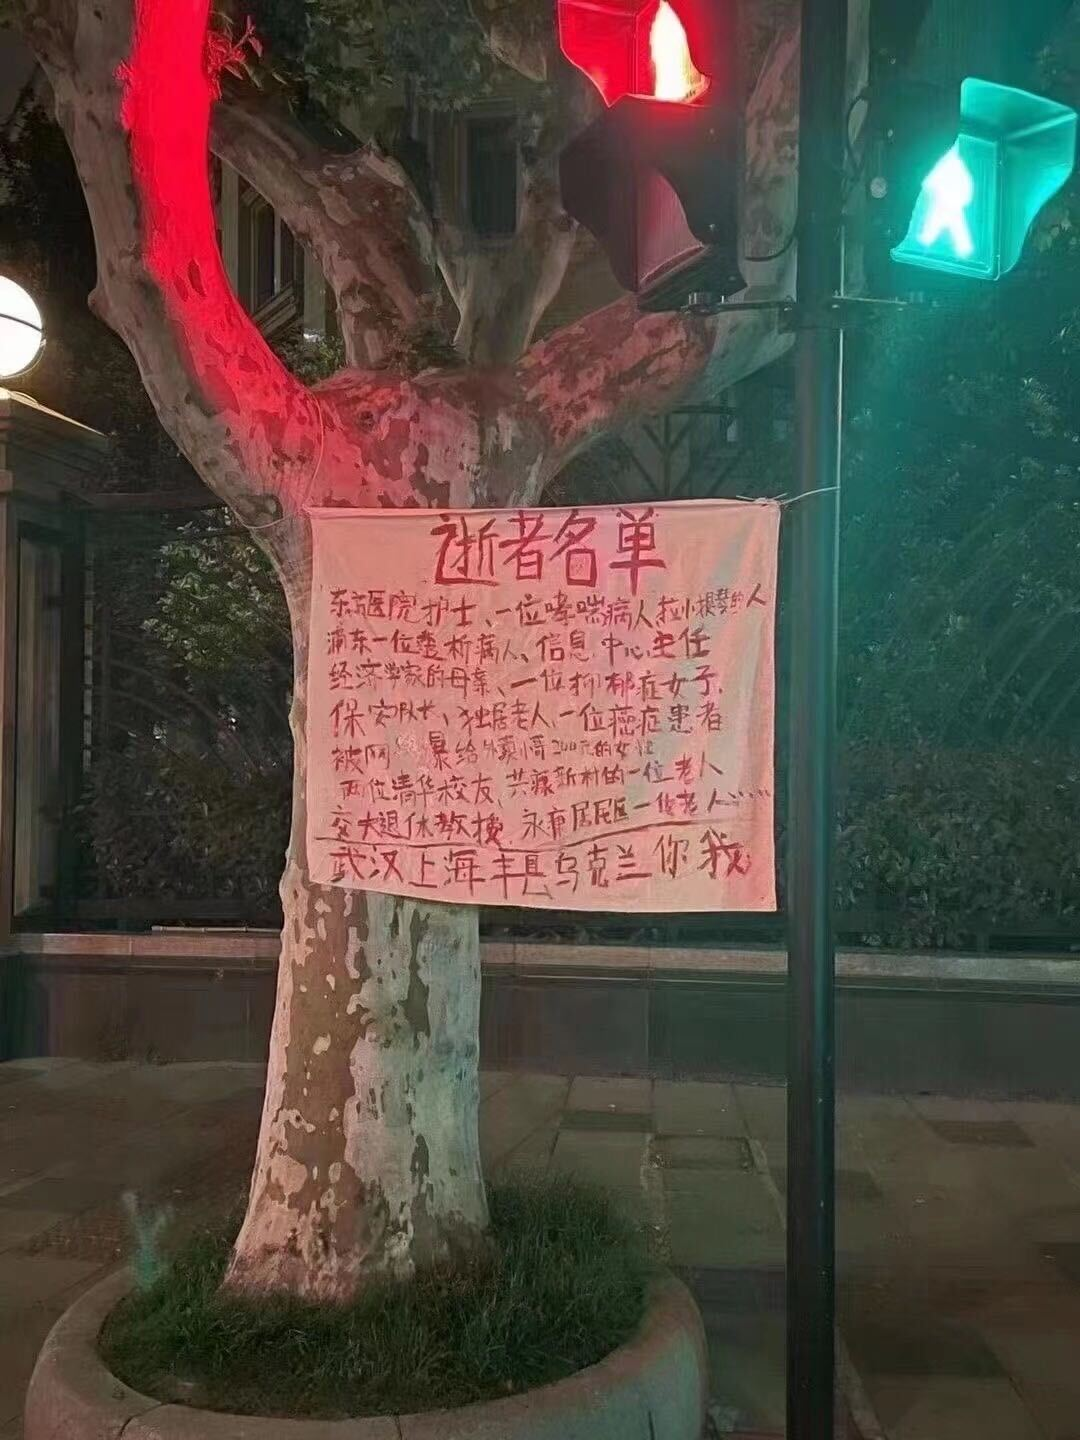 逝者名单
东方医院护士、一位哮喘病人、拉小提琴的人
浦东一位透析病人、信息中心主任
经济学家的母亲、一位抑郁症女子、
保安队长、独居老人、一位癌症患者
被网暴给外卖小哥200元的女性
两位清华校友、共康新村的一位老人
交大退休教授、永康居民区一位老人……
武汉上海丰县乌克兰你我